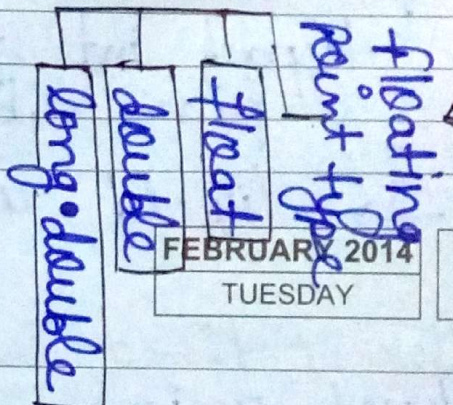 floating
point type
float
double
long double
FEBRUARY 2014
TUESDAY